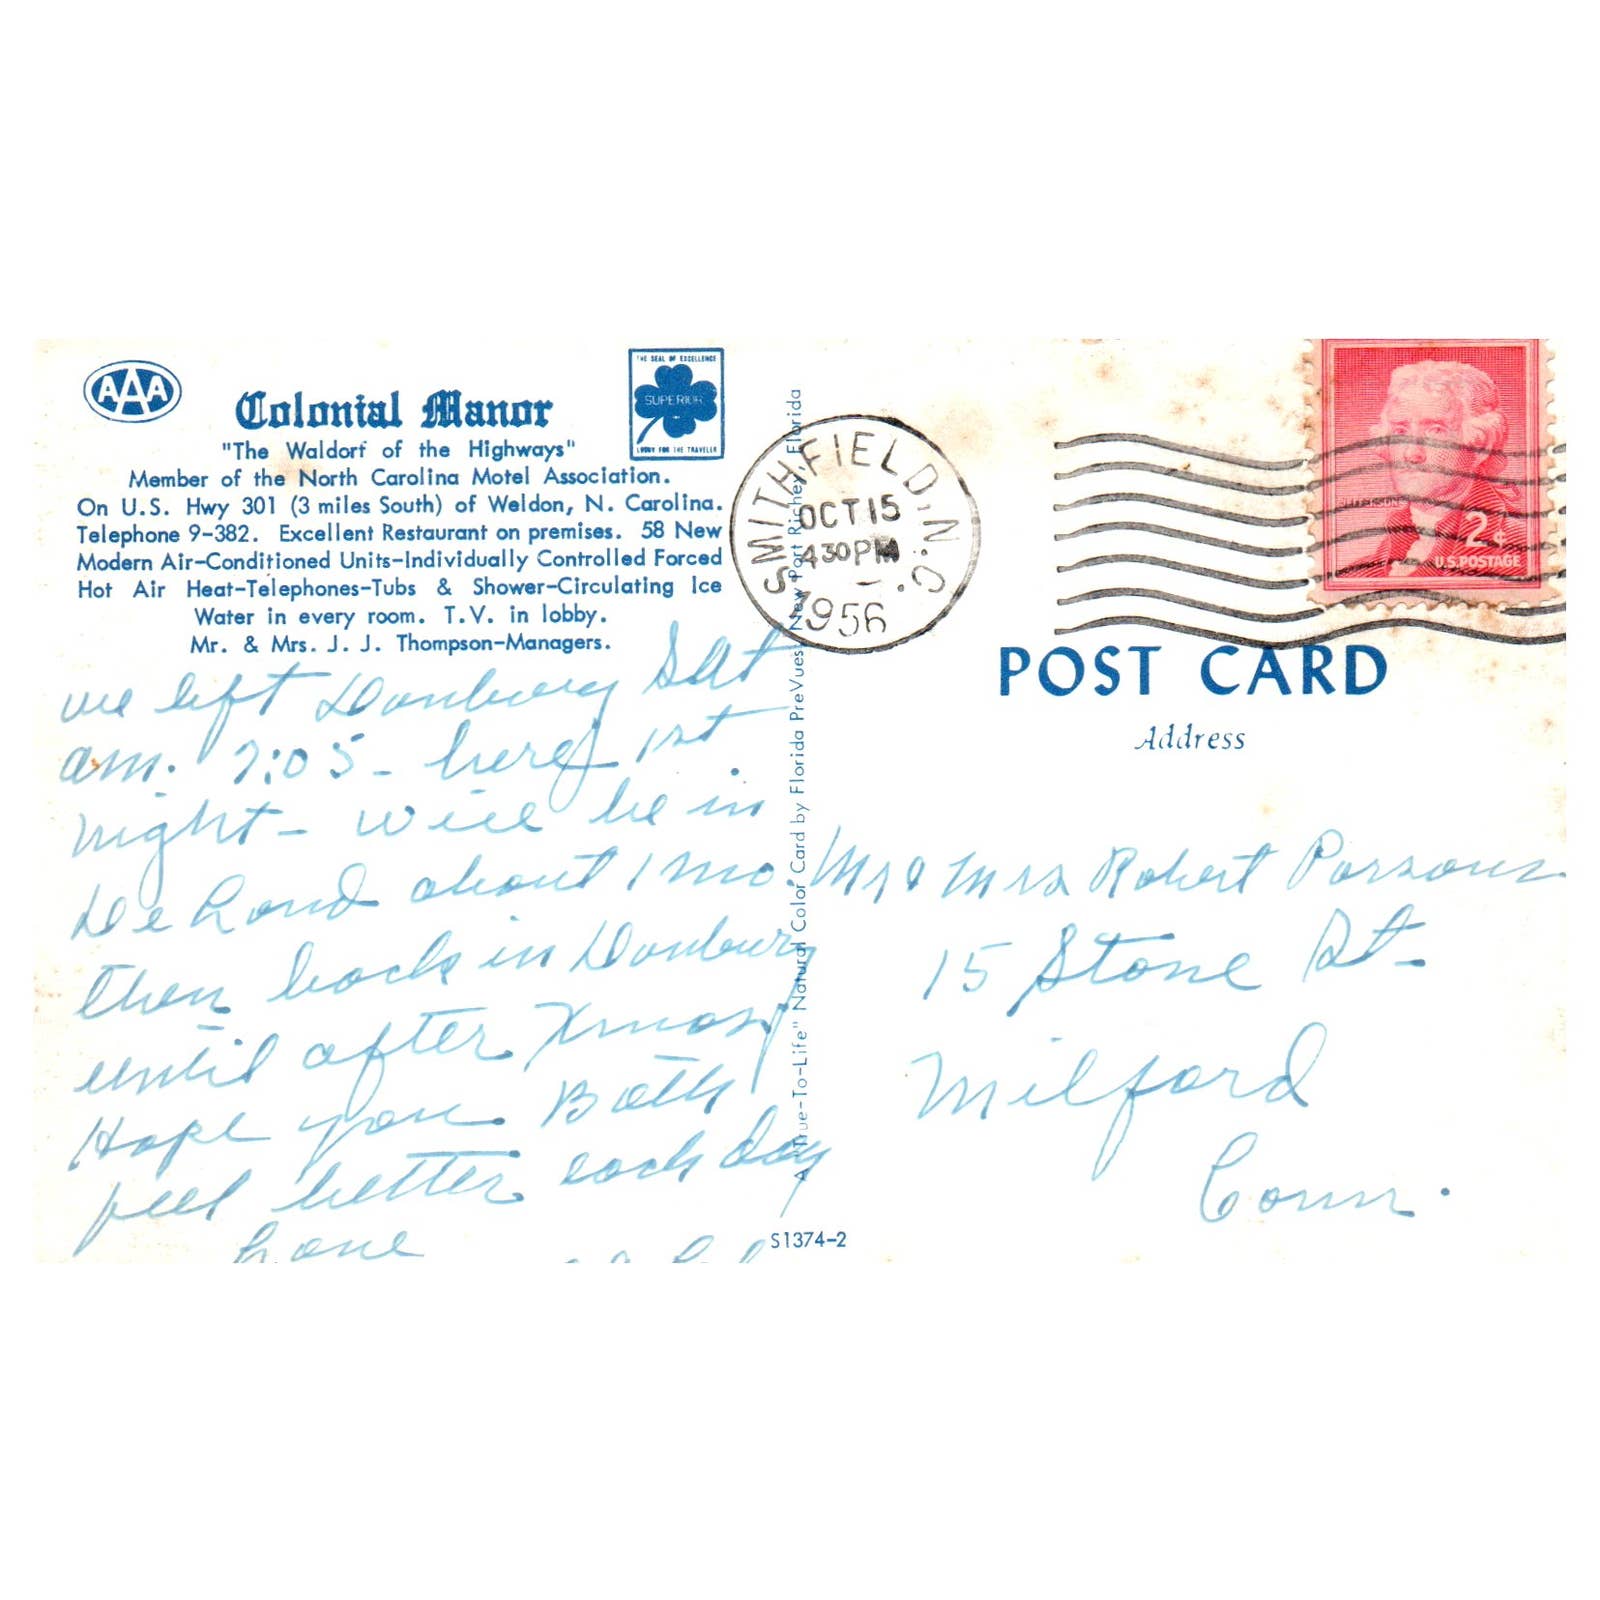 AAA
Colonial Manor
THE SEAL OF EXCELLENCE
SUPERIOR
LOOK FOR THE TRAVELER
"The Waldorf of the Highways"
Member of the North Carolina Motel Association.
On U.S. Hwy 301 (3 miles South) of Weldon, N. Carolina.
Telephone 9-382. Excellent Restaurant on premises. 58 New
Modern Air-Conditioned Units-Individually Controlled Forced
Hot Air Heat-Telephones-Tubs & Shower-Circulating Ice
Water in every room. T.V. in lobby.
Mr. & Mrs. J. J. Thompson-Managers.
we left Danbury Sat
am. 7:05 - here 1st
night - will be in
DeLand about 1 mo.
then back in Danbury
until after Xmas
Hope you Both
feel better each day
Love
A "True-To-Life" Natural Color Card by Florida PreVues, New Port Richey, Florida
S1374-2
SMITHFIELD, N.C.
OCT 15
4 30 PM
1956
JEFFERSON
2¢
U.S. POSTAGE
POST CARD
Address
Mr & Mrs Robert Parsons
15 Stone St -
Milford
Conn.